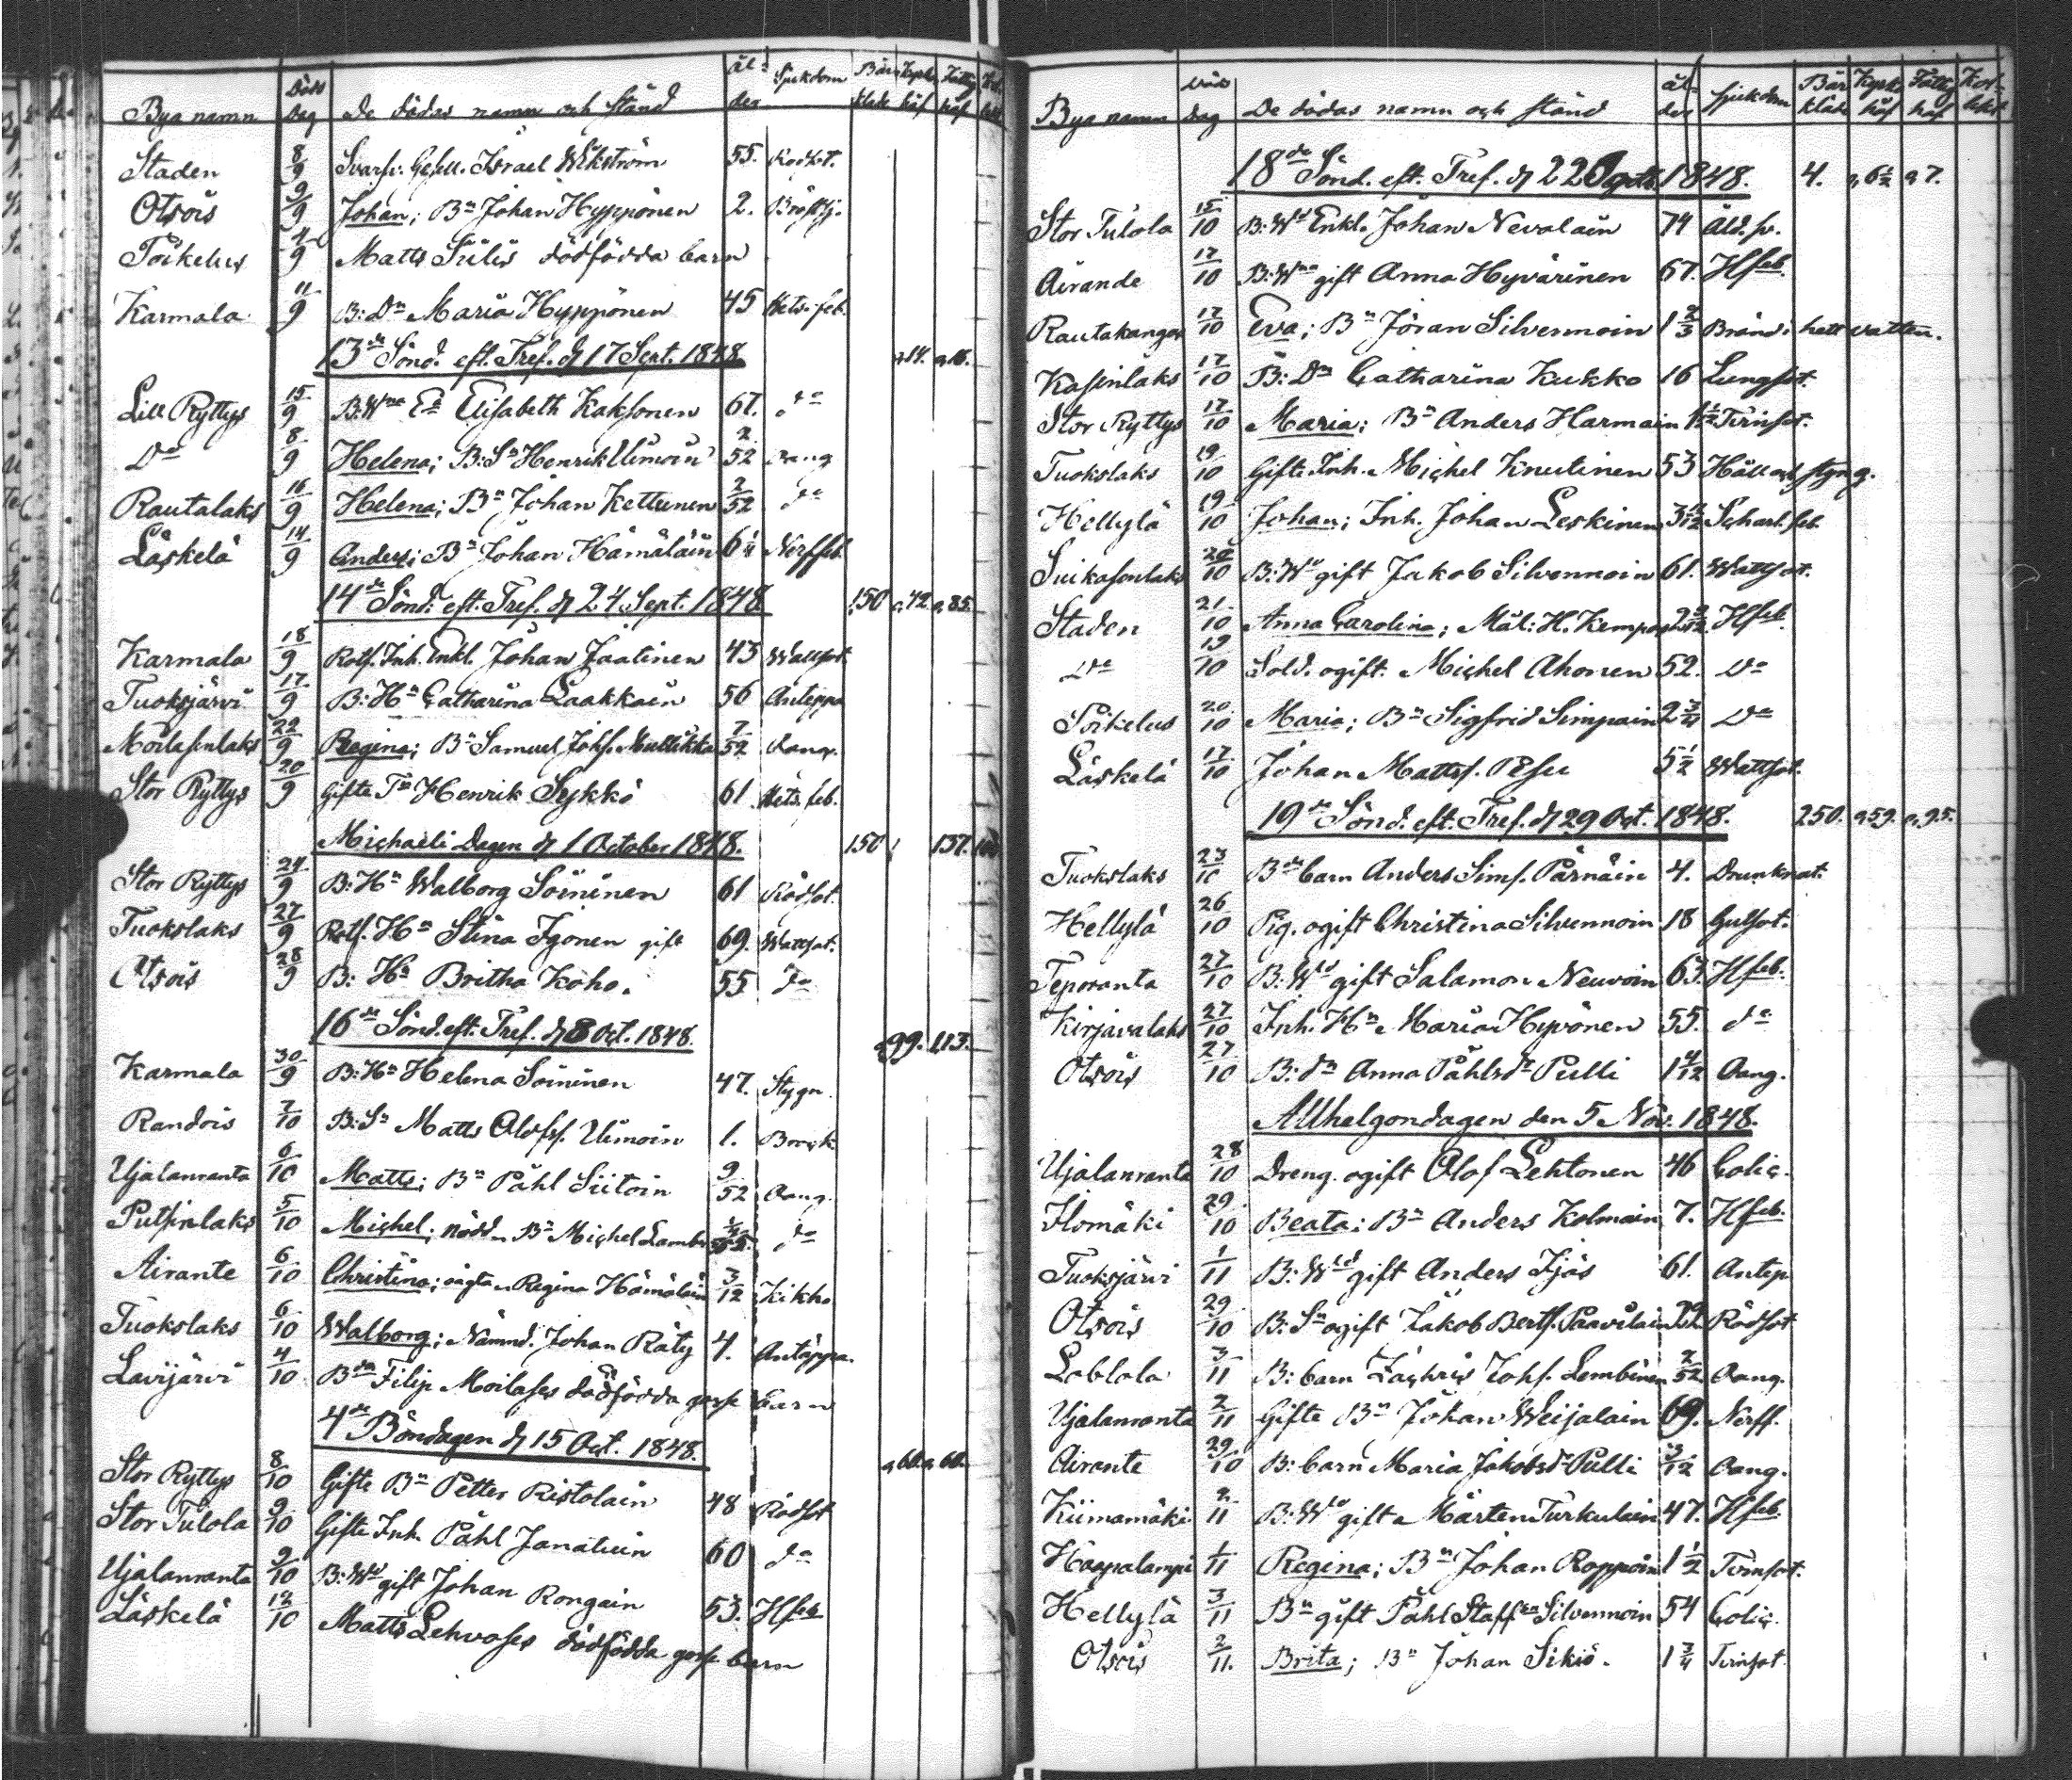 Bya namn Döds Dag De dödas namn och stånd Ål- der Sjukdom Bår kläde Kyrk håf Fattig håf
Staden 8/9 Svarfv. Gesell. Israel Wikström 55. Rödsot.
Otsois 9/9 Johan; Bn Johan Hyppönen 2. Bröstsj.
Toikelus 4/9 Matts Siilis dödfödda barn
Karmala 11/9 B: Dn Maria Hyppönen 45 Hets. feb.
13de Sönd. eft. Tref. d 17 Sept. 1848.
Lill Ryttys 15/9 B:Wna Ea Elisabeth Kaksonen 67. do
Do 8/9 Helena; B: Sn Henrik Uimoin 2/52 Aang
Rautalaks 16/9 Helena; Bn Johan Kettunen 2/52 do
Läskelä 14/9 Anders; Bn Johan Hämäläin 6 1/4 Nerffeb.
14de Sönd. eft. Tref. d 24 Sept. 1848 150 42 85.
Karmala 18/9 Rotf. Inh. Enkl. Johan Jaatinen 43 Wattsot
Tuoksjärvi 17/9 B: Hn Catharina Laakkain 56 Anteppa
Moilasenlaks 22/9 Regina; Bn Samuel Johs. Mullikka 7/52 Aang.
Stor Ryttys 20/9 Gifte Tn Henrik Sykkö 61 Hets. feb.
Michaeli Dagen d 1 October 1848. 150 137.
Stor Ryttys 24/9 B: Hn Walborg Soininen 61 Rödsot.
Tuokslaks 27/9 Rotf. Hn Stina Igonen gift 69. Wattsot.
Otsois 28/9 B: Hn Britha Koho. 55 do
16de Sönd. eft. Tref. d 8 Oct. 1848. 99. 113.
Karmala 30/9 B: Hn Helena Soininen 47. Stygn.
Randois 7/10 B: Sn Matts Olofss. Uimoin 1. Bräck
Ujalanranta 6/10 Matts; Bn Påhl Siitoin 9/52 Aang.
Putsinlaks 5/10 Michel; nödd. Bn Michel Lamb do
Airante 6/10 Christina; oägta Regina Hämäläin 3/12 Kikho
Tuokslaks 6/10 Walborg; Nämnd. Johan Räty 4. Antäppa.
Lavijärvi 4/10 Bda Filip Moilases dödfödda gosse barn
4de Böndagen d 15 Oct. 1848. 60. 60.
Stor Ryttys 8/10 Gifte Bn Petter Ristolain 48 Rödsot
Stor Tulola 9/10 Gifte Inh. Påhl Janatuin 60 do
Ujalanranta 9/10 B: Wd gift Johan Rongain 53. Hfeb
Läskelä 12/10 Matts Lehvoses dödfödda gosse barn
Bya namn Döds dag De dödas namn och stånd ål- der Sjukdom Bår kläde Kyrk håf Fattig håf
18de Sönd. eft. Tref. d 22 Octob 1848. 4. 6 1/2 7.
Stor Tulola 15/10 B: Wd Enkl. Johan Nevalain 74 Åld. sv.
Airande 17/10 B: Wna gift Anna Hyvärinen 67. Hfeb
Rautakangas 17/10 Eva; Bn Jöran Silvennoin 1 2/3 Bränd i hett vatten.
Kasinlaks 17/10 B: Dn Catharina Kukko 16 Lungsot.
Stor Ryttys 17/10 Maria; Bn Anders Harmain 1 1/2 Tvinsot.
Tuokslaks 19/10 Gifte Inh. Michel Knutinen 53 Håll och styng.
Hellylä 19/10 Johan; Inh. Johan Leskinen Scharl. feb
Suikasenlaks 20/10 B: Wd gift Jakob Silvennoin 61. Wattsot.
Staden 21/10 Anna Carolina; Mål: H. Kempe Hfeb.
Do 19/10 Sold. ogift. Michel Ahonen 52. Do
Poikelus 20/10 Maria; Bn Sigfrid Simpain 2 3/4 Do
Läskelä 17/10 Johan Mattss. Pesu 5 1/2 Wattsot.
19de Sönd. eft. Tref. d 29 Oct. 1848. 250. 59. 95.
Tuokslaks 23/10 Bde barn Anders Sims. Pärnäin 4. Drunknat.
Hellylä 26/10 Pig. ogift Christina Silvennoin 18 Gulsot.
Teporanta 27/10 B: Wd gift Salamon Neuvoin 63. Hfeb.
Kirjavalaks 27/10 Inh. Hn Maria Hyvönen 55. do
Otsois 27/10 B: dn Anna Påhlsdr Pulli 1 4/12 Aang.
Allhelgondagen den 5 Nov. 1848.
Ujalanranta 28/10 Dreng. ogift Olof Lehtonen 46 Colic.
Ilomäki 29/10 Beata; Bn Anders Kolmain 7. Hfeb.
Tuoksjärvi 1/11 B: Wd gift Anders Ijäs 61. Antep
Otsois 29/10 B. Sn ogift Jakob Bertf. Paavilain 22 Rödsot
Lahlola 3/11 B: barn Zachris Johs. Lembinen 2/52 Aang.
Ujalanranta 2/11 Gifte Bn Johan Weijalain 69. Nerff.
Airante 29/10 B: barn Maria Jakobsdr Pulli 3/12 Aang.
Kiimamäki 2/11 B: Wd gift Mårten Turkulain 47. Hfeb.
Haapalampi 1/11 Regina; Bn Johan Roppoin 1 1/2 Tvinsot.
Hellylä 3/11 Bn gift Påhl Staffsn Silvennoin 54 Colic.
Otsois 2/11. Brita; Bn Johan Sikiö. 1 3/4 Tvinsot.